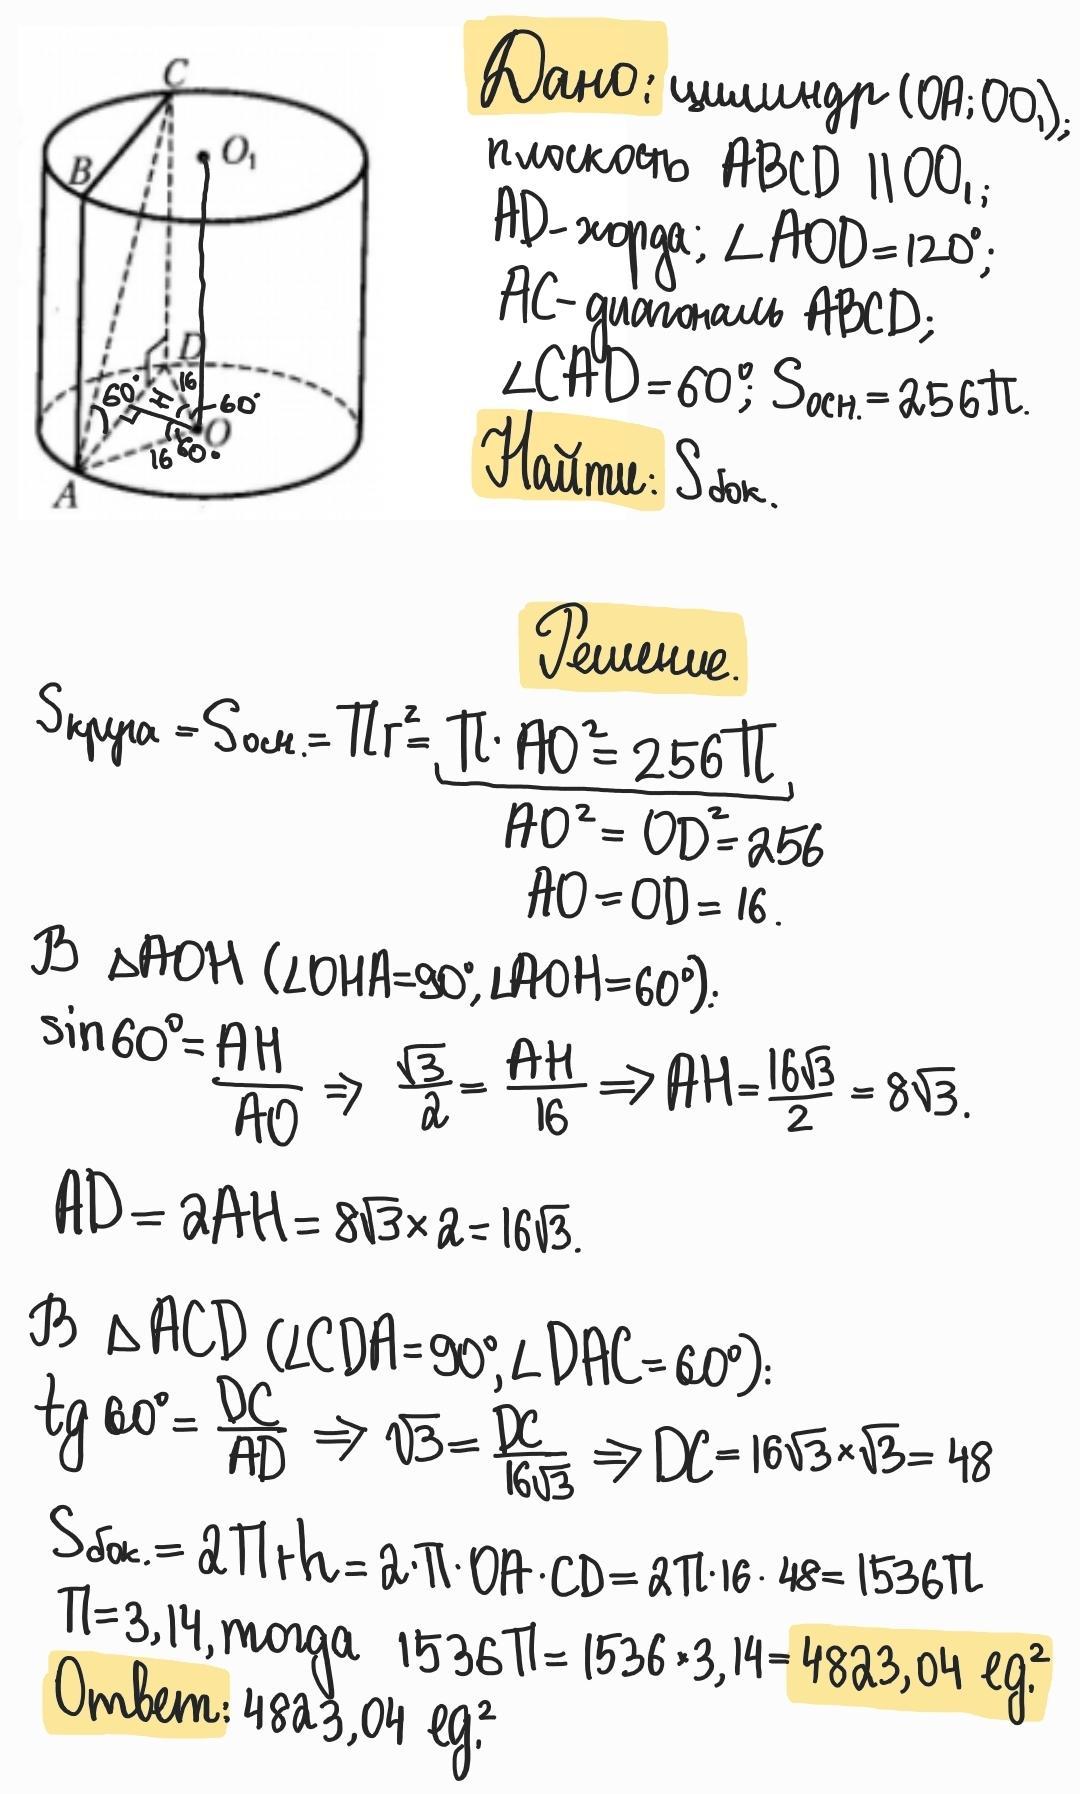 C
B
O₁
D
60°
H
16
60°
O
60°
16
A
Дано: цилиндр (OA; OO₁);
плоскость ABCD || OO₁;
AD - хорда; ∠AOD = 120°;
AC - диагональ ABCD;
∠CAD = 60°; Sосн. = 256π.
Найти: Sбок.
Решение.
Sкруга = Sосн. = πr² = π · AO² = 256π
AO² = OD² = 256
AO = OD = 16.
В △AOH (∠OHA = 90°, ∠AOH = 60°):
sin 60° = AH/AO ⇒ √3/2 = AH/16 ⇒ AH = 16√3/2 = 8√3.
AD = 2AH = 8√3 × 2 = 16√3.
В △ACD (∠CDA = 90°, ∠DAC = 60°):
tg 60° = DC/AD ⇒ √3 = DC/16√3 ⇒ DC = 16√3 × √3 = 48
Sбок. = 2πrh = 2 · π · OA · CD = 2π · 16 · 48 = 1536π
π = 3,14, тогда 1536π = 1536 × 3,14 = 4823,04 ед.²
Ответ: 4823,04 ед.²